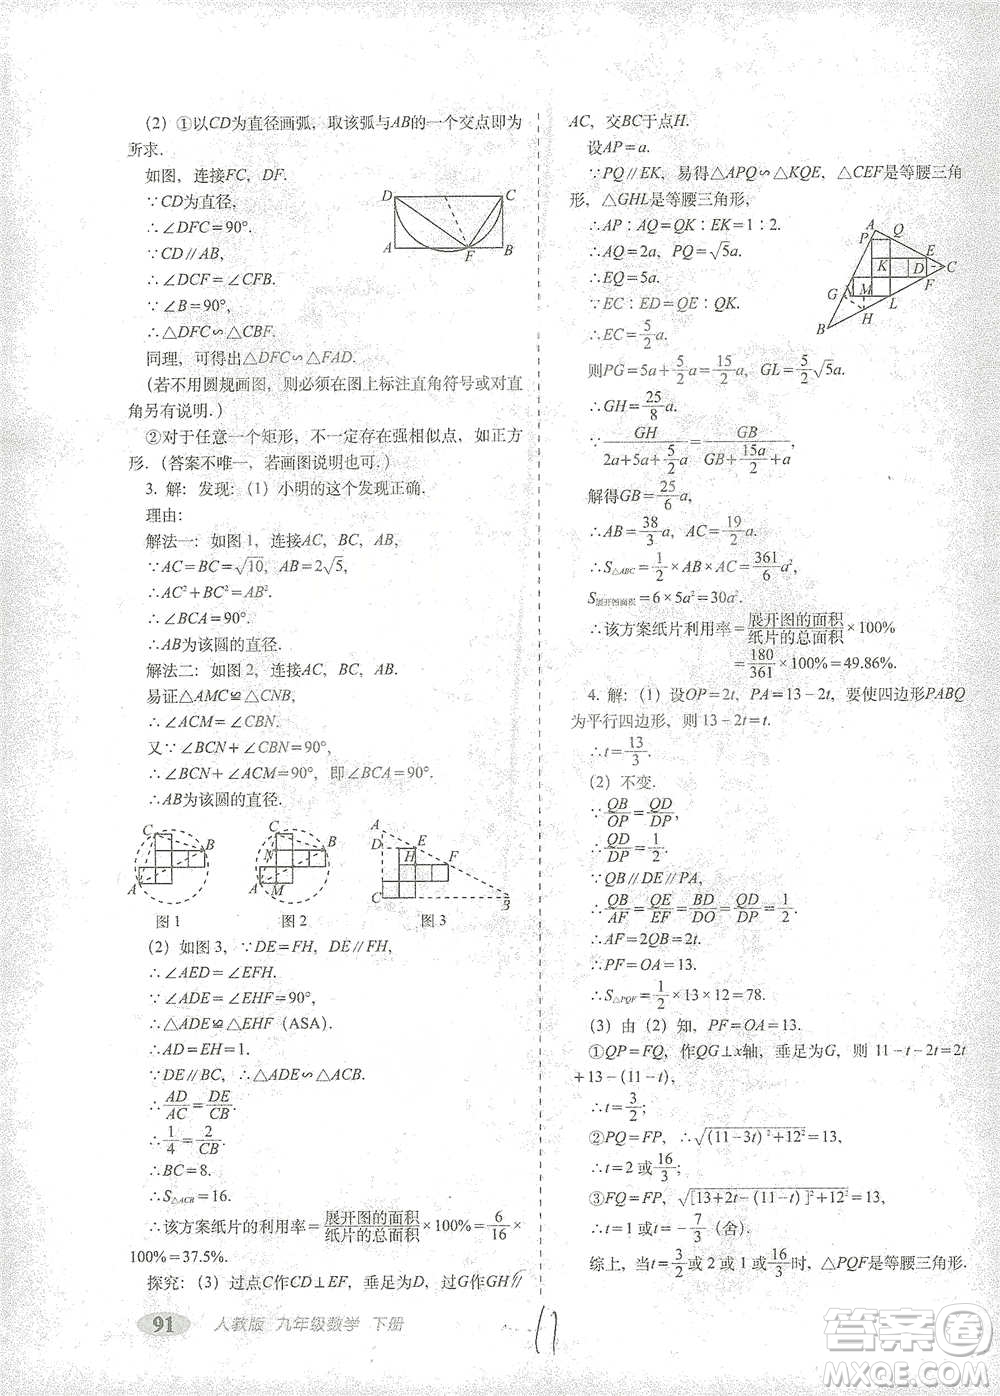 (2) ①以CD为直径画弧，取该弧与AB的一个交点即为
所求.
如图，连接FC，DF.
∵CD为直径，
∴∠DFC=90°.
∵CD∥AB，
∴∠DCF=∠CFB.
∵∠B=90°，
∴△DFC∽△CBF.
同理，可得出△DFC∽△FAD.
(若不用圆规画图，则必须在图上标注直角符号或对直
角另有说明.)
②对于任意一个矩形，不一定存在强相似点，如正方
形.(答案不唯一，若画图说明也可.)
3. 解：发现：(1) 小明的这个发现正确.
理由：
解法一：如图1，连接AC，BC，AB，
∵AC=BC=√10，AB=2√5，
∴AC²+BC²=AB².
∴∠BCA=90°.
∴AB为该圆的直径.
解法二：如图2，连接AC，BC，AB，
易证△AMC≌△CNB，
∴∠ACM=∠CBN.
又∵∠BCN+∠CBN=90°，
∴∠BCN+∠ACM=90°，即∠BCA=90°.
∴AB为该圆的直径.
图1 图2 图3
(2) 如图3，∵DE=FH，DE∥FH，
∴∠AED=∠EFH.
∵∠ADE=∠EHF=90°，
∴△ADE≌△EHF (ASA).
∴AD=EH=1.
∵DE∥BC，∴△ADE∽△ACB.
∴AD/AC=DE/CB.
∴1/4=2/CB.
∴BC=8.
∴S△ACB=16.
∴该方案纸片的利用率=展开图的面积/纸片的总面积×100%=6/16×
100%=37.5%.
探究：(3) 过点C作CD⊥EF，垂足为D，过G作GH∥
AC，交BC于点H.
设AP=a.
∵PQ∥EK，易得△APQ∽△KQE，△CEF是等腰三角
形，△GHL是等腰三角形，
∴AP：AQ=QK：EK=1：2.
∴AQ=2a，PQ=√5a.
∴EQ=5a.
∵EC：ED=QE：QK.
∴EC=5/2a.
则PG=5a+5/2a=15/2a，GL=5/2√5a.
∴GH=25/8a.
∵GH/(2a+5a+5/2a)=GB/(GB+15a/2+a).
解得GB=25/6a，
∴AB=38/3a，AC=19/2a.
∴S△ABC=1/2×AB×AC=361/6a²，
S展开图面积=6×5a²=30a².
∴该方案纸片利用率=展开图的面积/纸片的总面积×100%
=180/361×100%=49.86%.
4. 解：(1) 设OP=2t，PA=13-2t，要使四边形PABQ
为平行四边形，则13-2t=t.
∴t=13/3.
(2) 不变.
∵QB/OP=QD/DP，
∴QD/DP=1/2.
∵QB∥DE∥PA，
∴QB/AF=QE/EF=BD/DO=QD/DP=1/2.
∴AF=2QB=2t.
∴PF=OA=13.
∴S△PQF=1/2×13×12=78.
(3) 由 (2) 知，PF=OA=13.
①QP=FQ，作QG⊥x轴，垂足为G，则 11-t-2t=2t
+13-(11-t)，
∴t=3/2;
②PQ=FP，∴√((11-3t)²+12²)=13，
∴t=2或16/3;
③FQ=FP，√([13+2t-(11-t)]²+12²)=13，
∴t=1或-7/3(舍).
综上，当t=3/2或2或1或16/3时，△PQF是等腰三角形.
91 人教版 九年级数学 下册
17
答案圈
MXQE.COM